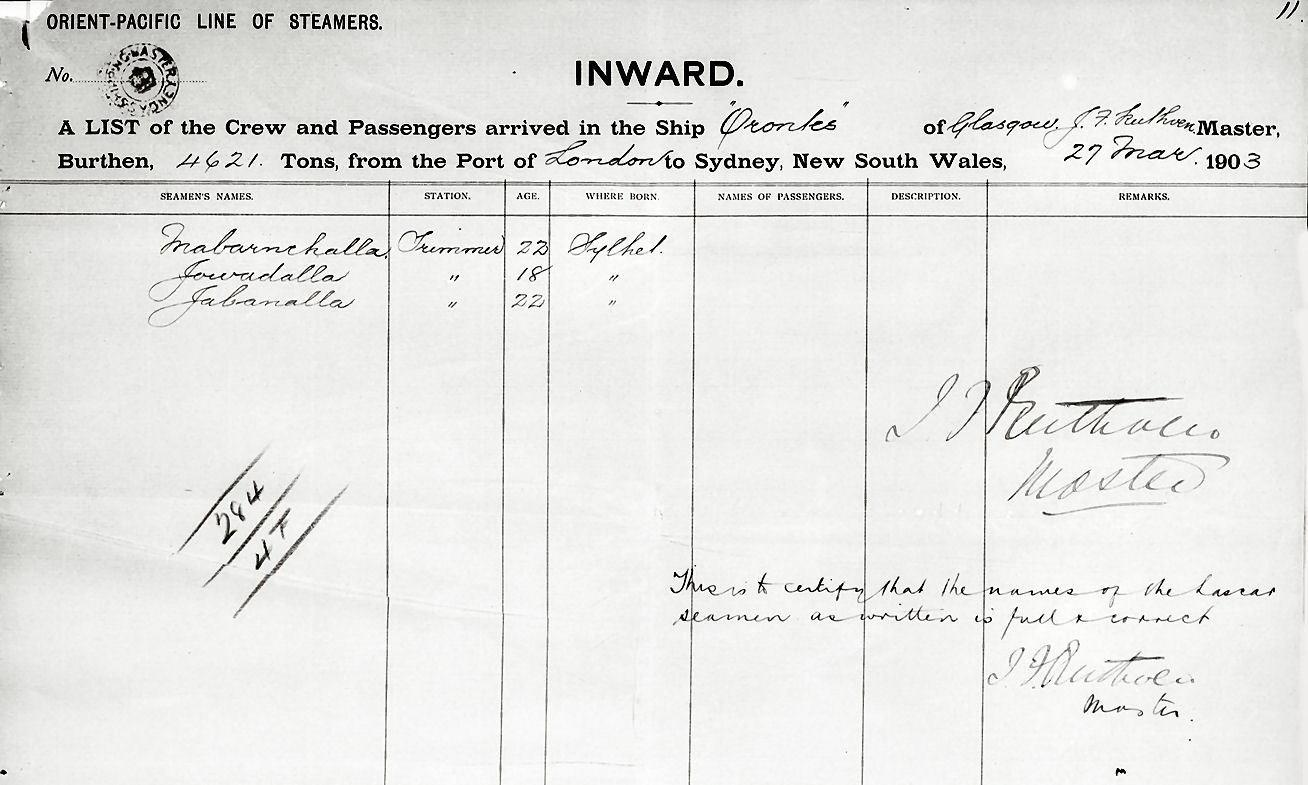 11.
ORIENT-PACIFIC LINE OF STEAMERS.
No.
INWARD.
A LIST of the Crew and Passengers arrived in the Ship "Orontes" of Glasgow, J. F. Ruthven Master,
Burthen, 4621. Tons, from the Port of London to Sydney, New South Wales, 27 Mar. 1903
SEAMEN'S NAMES. STATION. AGE. WHERE BORN. NAMES OF PASSENGERS. DESCRIPTION. REMARKS.
Mabarnchalla Trimmer 22 Sylhet.
Jowadalla " 18 "
Jabanalla " 22 "
J F Ruthven
Master
284
47
This is to certify that the names of the Lascar
seamen as written is full & correct
J. F. Ruthven
Master.